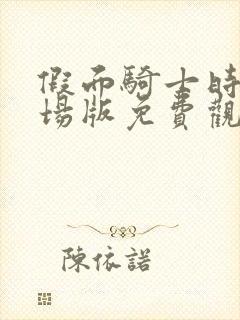 假面騎士時
場版免費觀
陳依諾